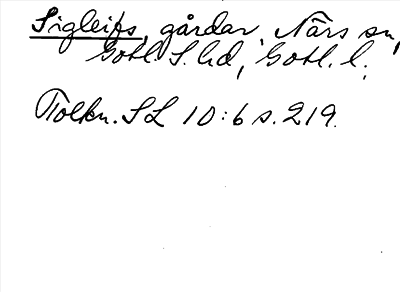 Sigleifs, gårdar, Närs sn,
Gotl. S. hd, Gotl. l.;
Tolkn. SL 10:6 s. 219.